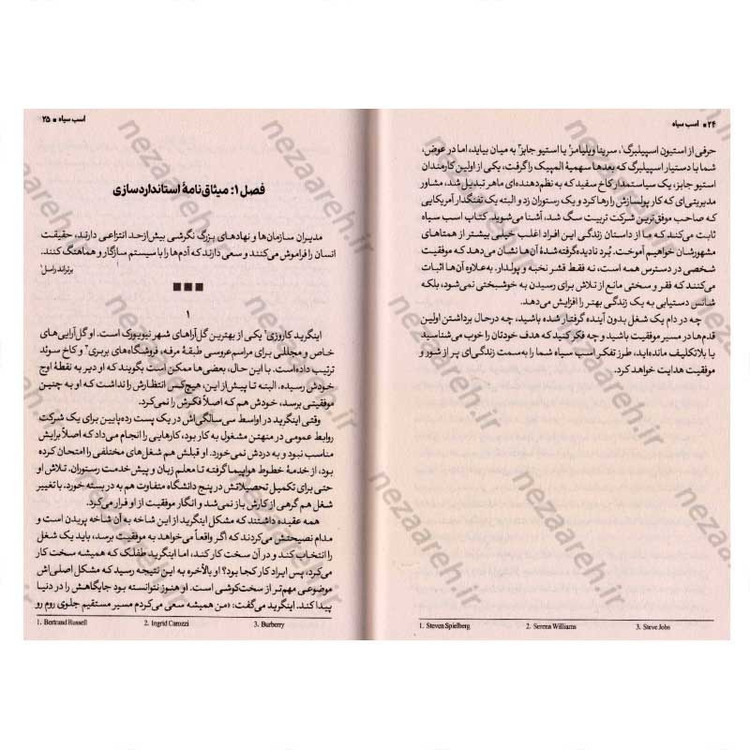 ۲۴ ■ اسب سیاه
حرفی از استیون اسپیلبرگ¹، سرینا ویلیامز² یا استیو جابز³ به میان بیاید، اما در عوض،
شما با دستیار اسپیلبرگ که بعدها سهمیهٔ المپیک را گرفت، یکی از اولین کارمندان
استیو جابز، یک سیاستمدار کاخ سفید که به نظم‌دهنده‌ای ماهر تبدیل شد، مشاور
مدیریتی‌ای که کار پولسازش را رها کرد و یک رستوران زد و البته یک تفنگدار آمریکایی
که صاحب موفق‌ترین شرکت تربیت سگ شد، آشنا می‌شوید. کتاب اسب سیاه
ثابت می‌کند که ما از داستان زندگی این افراد اغلب خیلی بیشتر از همتاهای
مشهورشان خواهیم آموخت. بُرد نادیده‌گرفته‌شدهٔ آن‌ها نشان می‌دهد که موفقیت
شخصی در دسترس همه است، نه فقط قشر نخبه و پولدار. به‌علاوه آن‌ها اثبات
می‌کنند که فقر و سختی مانع از تلاش برای رسیدن به خوشبختی نمی‌شود، بلکه
شانس دستیابی به یک زندگی بهتر را افزایش می‌دهد.
چه در دام یک شغل بدون آینده گرفتار شده باشید، چه درحال برداشتن اولین
قدم‌ها در مسیر موفقیت باشید و چه فکر کنید که هدف خودتان را خوب می‌شناسید
یا بلاتکلیف مانده‌اید، طرز تفکر اسب سیاه شما را به‌سمت زندگی‌ای پر از شور و
موفقیت هدایت خواهد کرد.
1. Steven Spielberg 2. Serena Williams 3. Steve Jobs
اسب سیاه ■ ۲۵
فصل ۱: میثاق‌نامهٔ استانداردسازی
مدیران سازمان‌ها و نهادهای بزرگ نگرشی بیش‌ازحد انتزاعی دارند، حقیقت
انسان را فراموش می‌کنند و سعی دارند که آدم‌ها را با سیستم سازگار و هماهنگ کنند.
برتراند راسل¹
■■■
۱
اینگرید کاروزی² یکی از بهترین گل‌آراهای شهر نیویورک است. او گل‌آرایی‌های
خاص و مجللی برای مراسم عروسی طبقهٔ مرفه، فروشگاه‌های بربری³ و کاخ سوئد
ترتیب داده است. با این حال، بعضی‌ها ممکن است بگویند که او دیر به نقطهٔ اوج
خودش رسیده. البته تا پیش از این، هیچ‌کس انتظارش را نداشت که او به چنین
موفقیتی برسد، خودش هم که اصلاً فکرش را نمی‌کرد.
وقتی اینگرید در اواسط سی‌سالگی‌اش در یک پست رده‌پایین برای یک شرکت
روابط عمومی در منهتن مشغول به کار بود، کارهایی را انجام می‌داد که اصلاً برایش
مناسب نبود و به دردش نمی‌خورد. او قبلش هم شغل‌های مختلفی را امتحان کرده
بود، از خدمهٔ خطوط هواپیما گرفته تا معلم زبان و پیش خدمت رستوران. تلاش او
حتی برای تکمیل تحصیلاتش در پنج دانشگاه متفاوت هم به در بسته خورد. با تغییر
شغل هم گرهی از کارش باز نمی‌شد و انگار موفقیت از او فرار می‌کرد.
همه عقیده داشتند که مشکل اینگرید از این شاخه به آن شاخه پریدن است و
مدام نصیحتش می‌کردند که اگر واقعاً می‌خواهد به موفقیت برسد، باید یک شغل
را انتخاب کند و در آن سخت کار کند، اما اینگرید طفلک که همیشه سخت کار
می‌کرد، پس ایراد کار کجا بود؟ او بالأخره به این نتیجه رسید که مشکل اصلی‌اش
موضوعی مهم‌تر از سخت‌کوشی است. او هنوز نتوانسته بود جایگاهش را در دنیا
پیدا کند. اینگرید می‌گفت: «من همیشه سعی می‌کردم مسیر مستقیم جلوی روم رو
1. Bertrand Russell 2. Ingrid Carozzi 3. Burberry
nezaareh.ir
nezaareh.ir
nezaareh.ir
nezaareh.ir
nezaareh.ir
nezaareh.ir
nezaareh.ir
nezaareh.ir
nezaareh.ir
nezaareh.ir